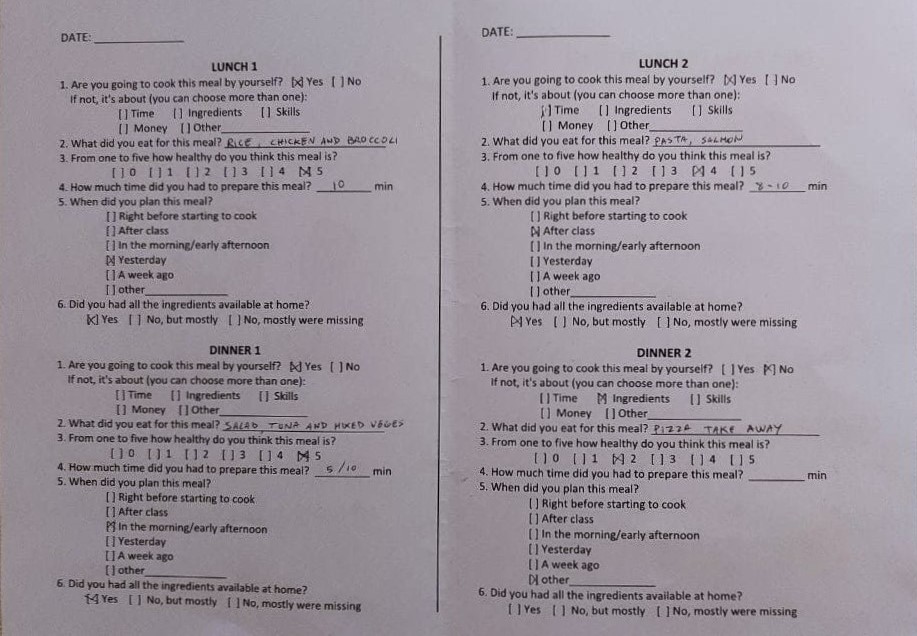 DATE: ____________
LUNCH 1
1. Are you going to cook this meal by yourself? [X] Yes [ ] No
If not, it's about (you can choose more than one):
[ ] Time [ ] Ingredients [ ] Skills
[ ] Money [ ] Other____________
2. What did you eat for this meal? RICE, CHICKEN AND BROCCOLI
3. From one to five how healthy do you think this meal is?
[ ] 0 [ ] 1 [ ] 2 [ ] 3 [ ] 4 [X] 5
4. How much time did you had to prepare this meal? 10 min
5. When did you plan this meal?
[ ] Right before starting to cook
[ ] After class
[ ] In the morning/early afternoon
[X] Yesterday
[ ] A week ago
[ ] other____________
6. Did you had all the ingredients available at home?
[X] Yes [ ] No, but mostly [ ] No, mostly were missing
DINNER 1
1. Are you going to cook this meal by yourself? [X] Yes [ ] No
If not, it's about (you can choose more than one):
[ ] Time [ ] Ingredients [ ] Skills
[ ] Money [ ] Other____________
2. What did you eat for this meal? SALAD TUNA AND MIXED VEGES
3. From one to five how healthy do you think this meal is?
[ ] 0 [ ] 1 [ ] 2 [ ] 3 [ ] 4 [X] 5
4. How much time did you had to prepare this meal? 5/10 min
5. When did you plan this meal?
[ ] Right before starting to cook
[ ] After class
[X] In the morning/early afternoon
[ ] Yesterday
[ ] A week ago
[ ] other____________
6. Did you had all the ingredients available at home?
[X] Yes [ ] No, but mostly [ ] No, mostly were missing
DATE: ____________
LUNCH 2
1. Are you going to cook this meal by yourself? [X] Yes [ ] No
If not, it's about (you can choose more than one):
[ ] Time [ ] Ingredients [ ] Skills
[ ] Money [ ] Other____________
2. What did you eat for this meal? PASTA, SALMON
3. From one to five how healthy do you think this meal is?
[ ] 0 [ ] 1 [ ] 2 [ ] 3 [X] 4 [ ] 5
4. How much time did you had to prepare this meal? 8-10 min
5. When did you plan this meal?
[ ] Right before starting to cook
[X] After class
[ ] In the morning/early afternoon
[ ] Yesterday
[ ] A week ago
[ ] other____________
6. Did you had all the ingredients available at home?
[X] Yes [ ] No, but mostly [ ] No, mostly were missing
DINNER 2
1. Are you going to cook this meal by yourself? [ ] Yes [X] No
If not, it's about (you can choose more than one):
[ ] Time [X] Ingredients [ ] Skills
[ ] Money [ ] Other____________
2. What did you eat for this meal? PIZZA TAKE AWAY
3. From one to five how healthy do you think this meal is?
[ ] 0 [ ] 1 [X] 2 [ ] 3 [ ] 4 [ ] 5
4. How much time did you had to prepare this meal? ________ min
5. When did you plan this meal?
[ ] Right before starting to cook
[ ] After class
[ ] In the morning/early afternoon
[ ] Yesterday
[ ] A week ago
[X] other____________
6. Did you had all the ingredients available at home?
[ ] Yes [ ] No, but mostly [ ] No, mostly were missing